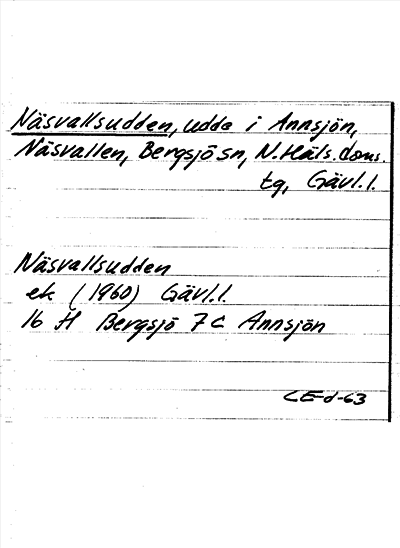 Näsvallsudden, udde i Annsjön,
Näsvallen, Bergsjö sn, N. Häls. doms.
tg, Gävl. l.
Näsvallsudden
ek (1960) Gävl. l.
16 H Bergsjö 7 c Annsjön
CE-d-63